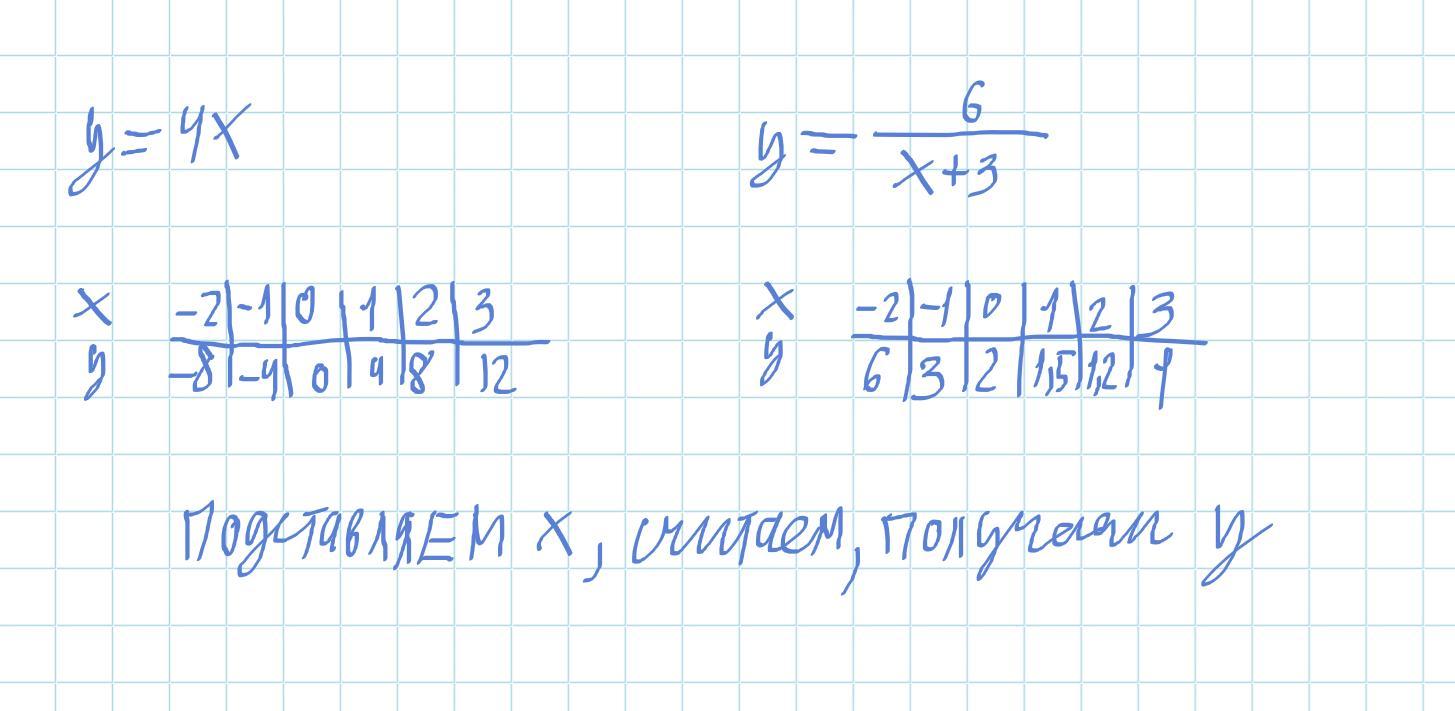 y = 4x
y = 6 / (x+3)
x -2 | -1 | 0 | 1 | 2 | 3
y -8 | -4 | 0 | 4 | 8 | 12
x -2 | -1 | 0 | 1 | 2 | 3
y 6 | 3 | 2 | 1,5 | 1,2 | 1
Подставляем x, считаем, получаем y